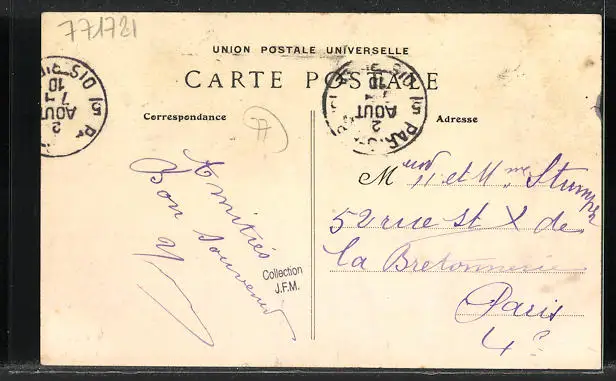 771721
UNION POSTALE UNIVERSELLE
CARTE POSTALE
Correspondance
Adresse
77
Amitiés
Bon souvenir
Collection
J.F.M.
M et Mme Stumpf
52 rue St X de
la Bretonnerie
Paris
4e
15 PARIS 15
10
7
AOUT
2